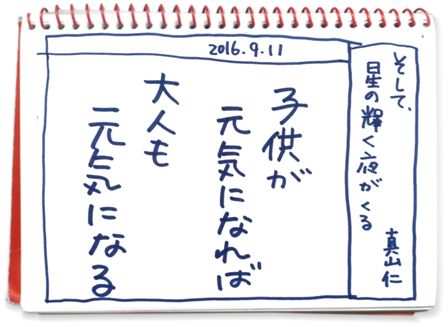 2016.9.11
そして、
星の輝く夜がくる
真山仁
子供が
元気になれば
大人も
元気になる